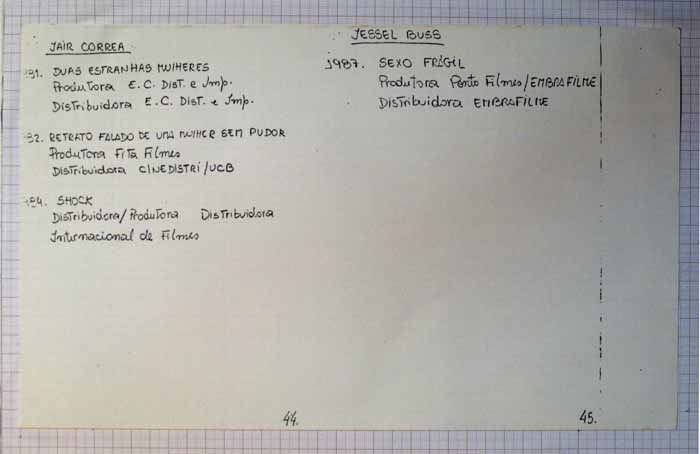 JAIR CORREA
81. DUAS ESTRANHAS MULHERES
Produtora E.C. Dist. e Imp.
Distribuidora E.C. Dist. e Imp.
82. RETRATO FALADO DE UMA MULHER SEM PUDOR
Produtora Fita Filmes
Distribuidora CINEDISTRI/UCB
84. SHOCK
Distribuidora/Produtora Distribuidora
Internacional de Filmes
44.
JESSEL BUSS
1987. SEXO FRÁGIL
Produtora Ponto Filmes/EMBRAFILME
Distribuidora EMBRAFILME
45.